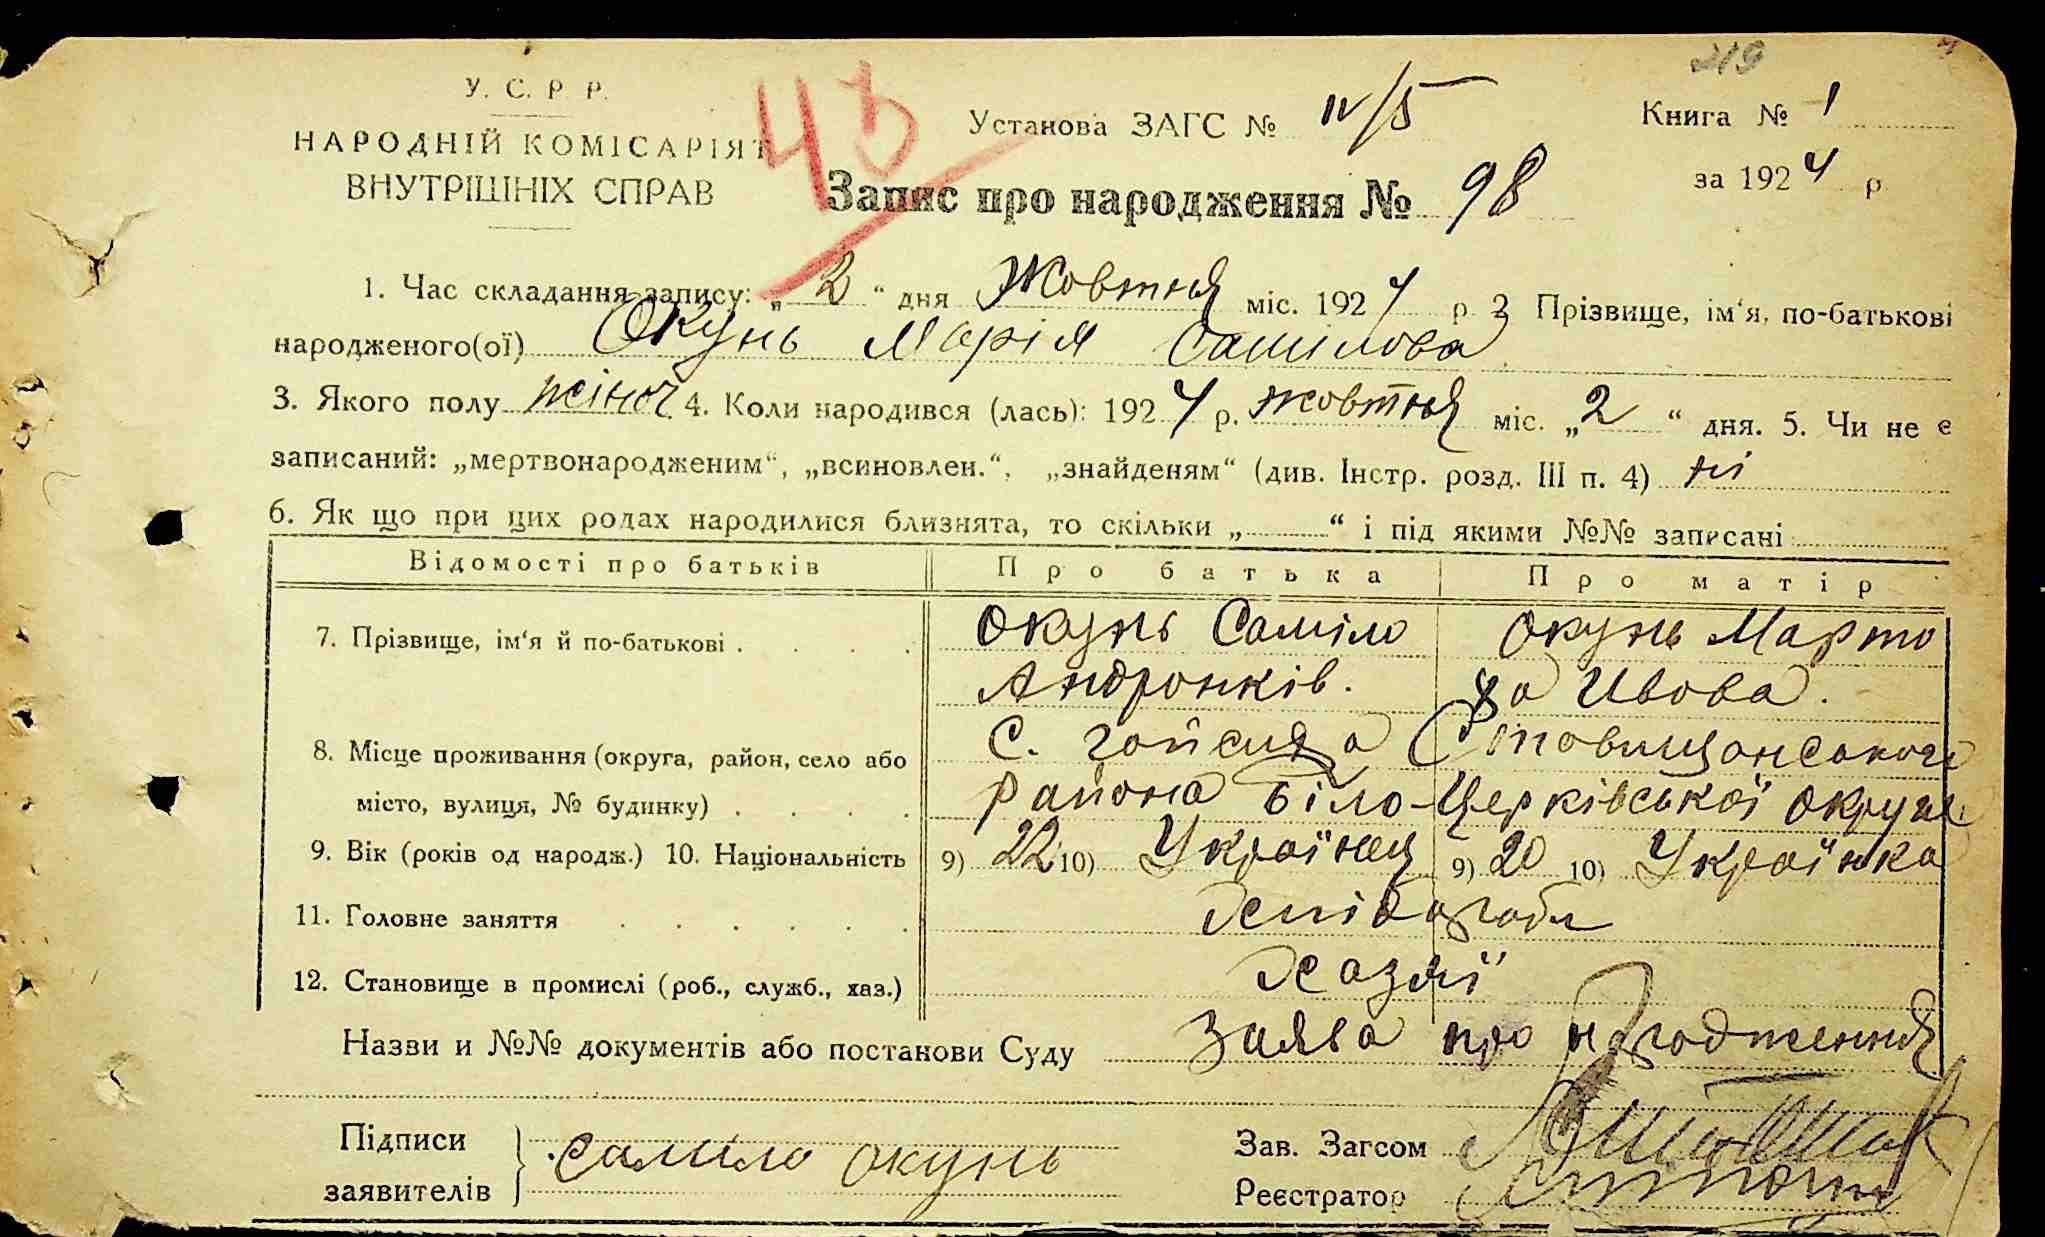 219
У. С. Р. Р.
НАРОДНІЙ КОМІСАРІЯТ
ВНУТРІШНІХ СПРАВ
Установа ЗАГС № IV/5
Книга № 1
за 1924 р.
Запис про народження № 98
1. Час складання запису: „2“ дня Жовтня міс. 1924 р. 2 Прізвище, ім‘я, по-батькові
народженого(ої) Окунь Марія Самилова
3. Якого полу жіноч 4. Коли народився (лась): 1924 р. жовтня міс. „2“ дня. 5. Чи не є
записаний: „мертвонародженим“, „всиновлен.“, „знайденям“ (див. Інстр. розд. III п. 4) ні
6. Як що при цих родах народилися близнята, то скільки „ “ і під якими №№ записані
Відомості про батьків Про батька Про матір
7. Прізвище, ім‘я й по-батькові Окунь Саміло Окунь Марто
Андронків. Ивова.
8. Місце проживання (округа, район, село або с. Ставищанського
місто, вулиця, № будинку) района Біло-Церківської округи
9. Вік (років од народж.) 10. Національність 9) 22 10) Українец 9) 20 10) Українка
11. Головне заняття хліборобн
12. Становище в промислі (роб., служб., хаз.) хазяї
Назви и №№ документів або постанови Суду Заява про народження
Підписи
заявителів
Самило Окунь
Зав. Загсом
Реєстратор